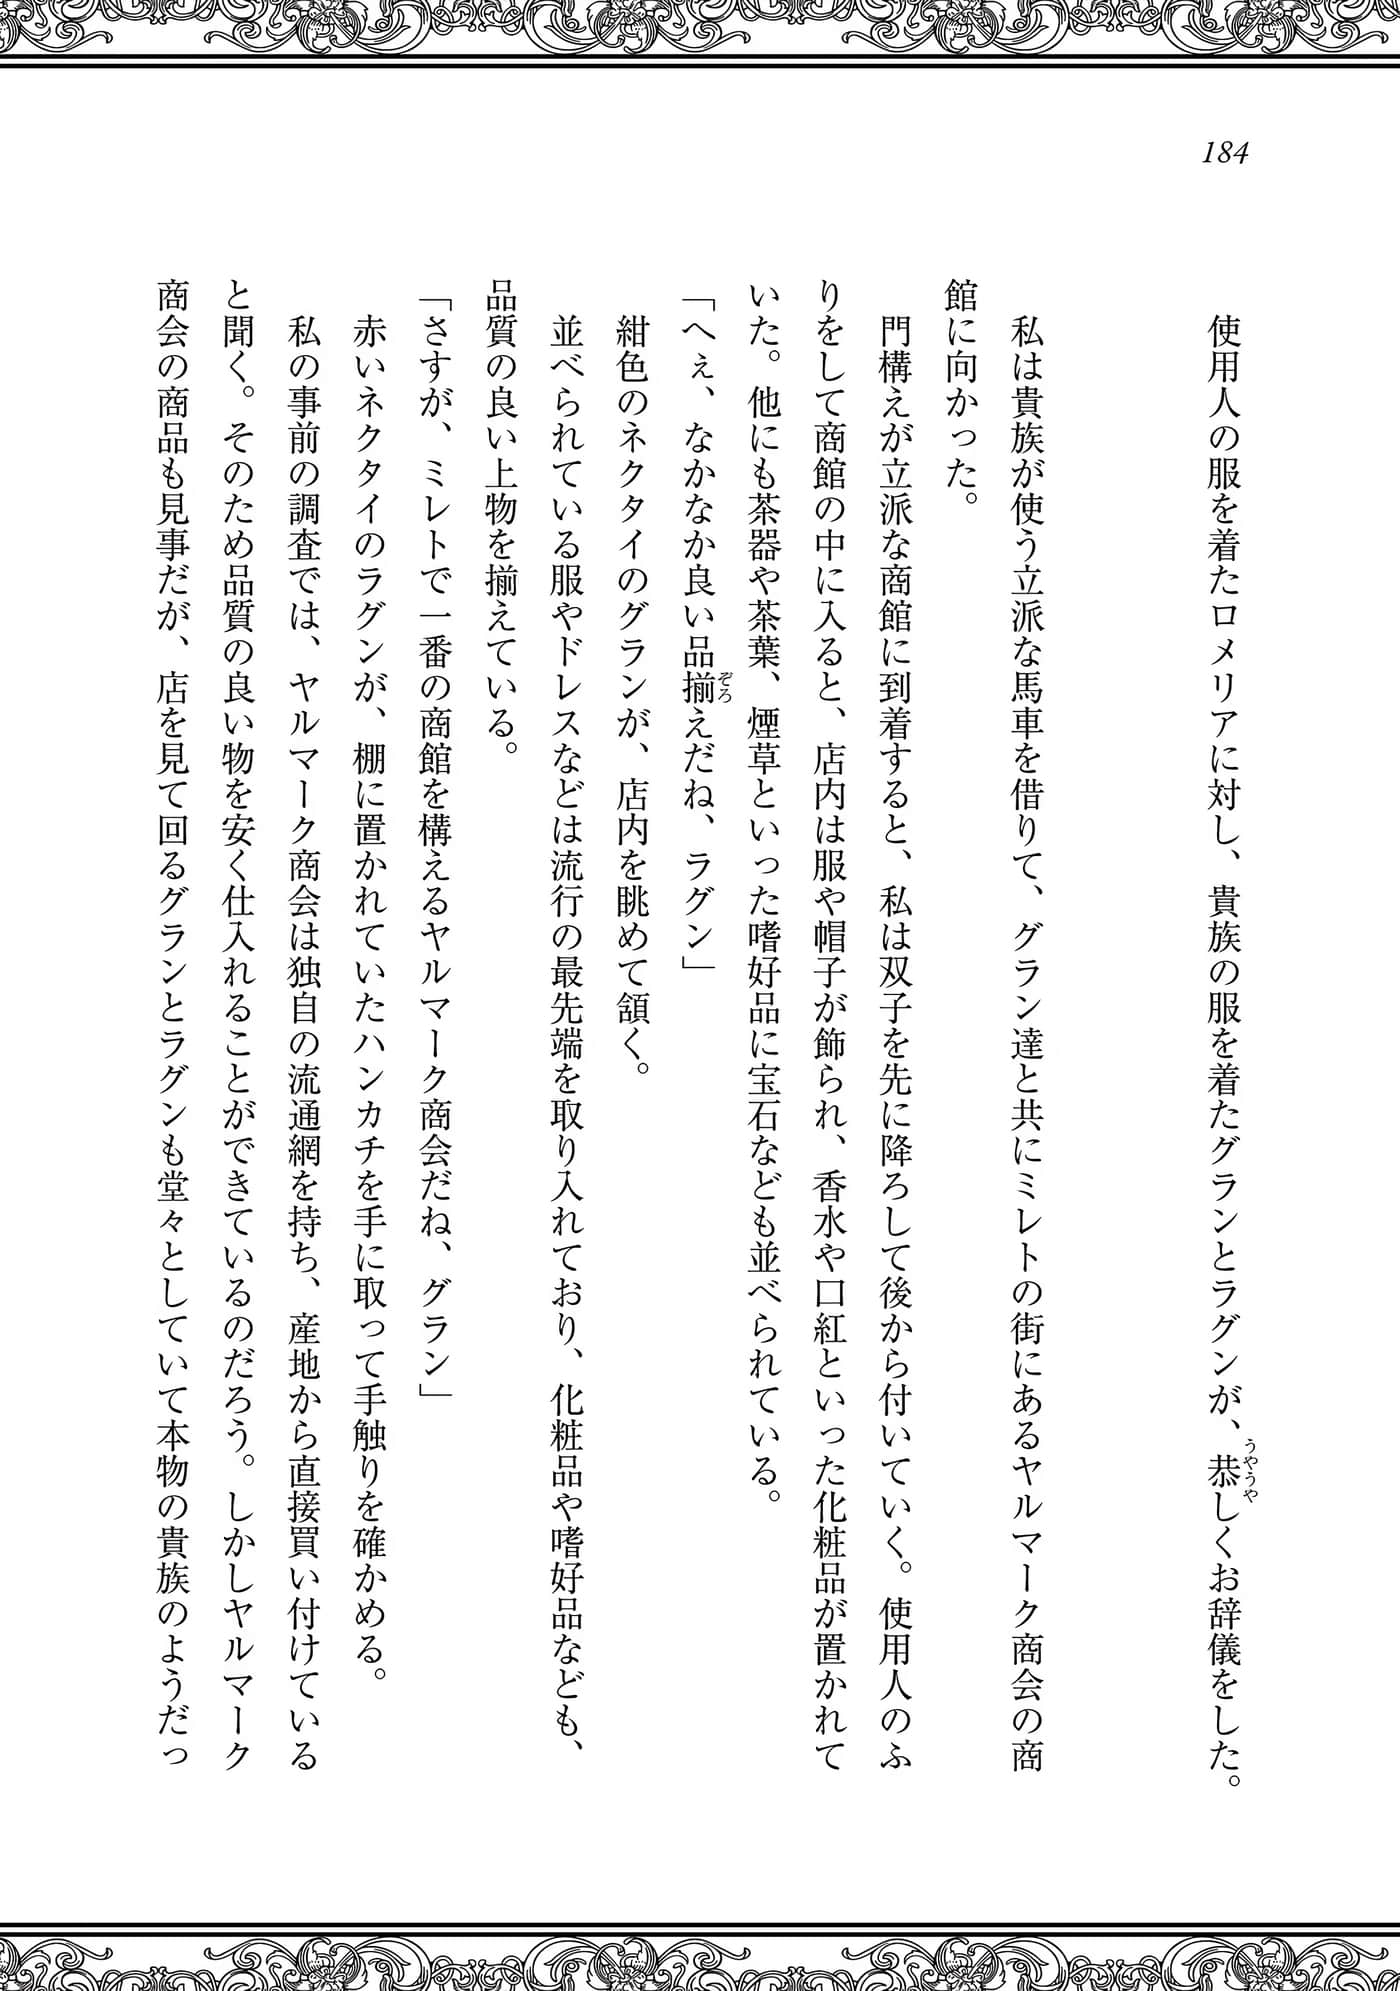 184
使用人の服を着たロメリアに対し、貴族の服を着たグランとラグンが、恭しくお辞儀をした。
うやうや
私は貴族が使う立派な馬車を借りて、グラン達と共にミレトの街にあるヤルマーク商会の商
館に向かった。
門構えが立派な商館に到着すると、私は双子を先に降ろして後から付いていく。使用人のふ
りをして商館の中に入ると、店内は服や帽子が飾られ、香水や口紅といった化粧品が置かれて
いた。他にも茶器や茶葉、煙草といった嗜好品に宝石なども並べられている。
「へぇ、なかなか良い品揃えだね、ラグン」
ぞろ
紺色のネクタイのグランが、店内を眺めて頷く。
並べられている服やドレスなどは流行の最先端を取り入れており、化粧品や嗜好品なども、
品質の良い上物を揃えている。
「さすが、ミレトで一番の商館を構えるヤルマーク商会だね、グラン」
赤いネクタイのラグンが、棚に置かれていたハンカチを手に取って手触りを確かめる。
私の事前の調査では、ヤルマーク商会は独自の流通網を持ち、産地から直接買い付けている
と聞く。そのため品質の良い物を安く仕入れることができているのだろう。しかしヤルマーク
商会の商品も見事だが、店を見て回るグランとラグンも堂々としていて本物の貴族のようだっ